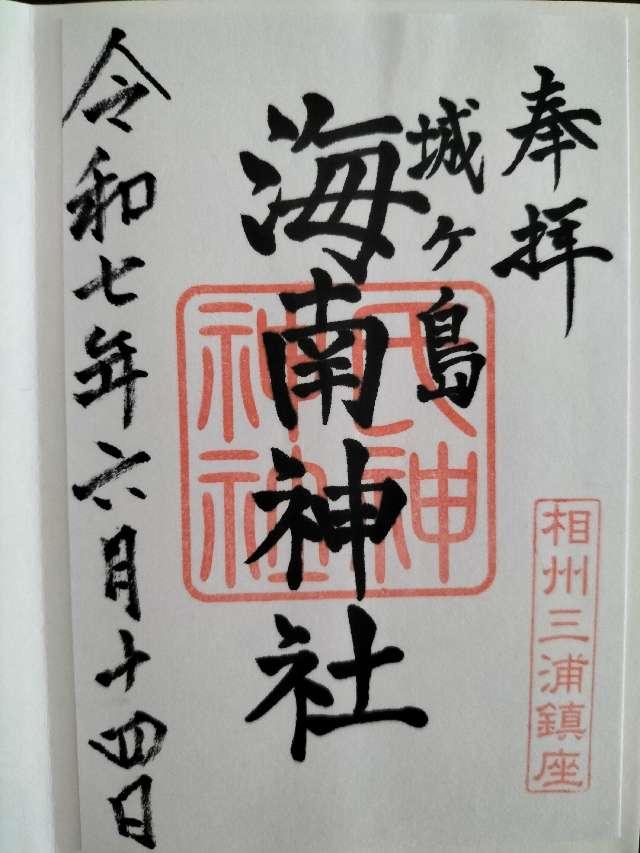 奉拝
相州三浦鎮座
城ヶ島
海南神社
氏神
神社
令和七年六月十四日